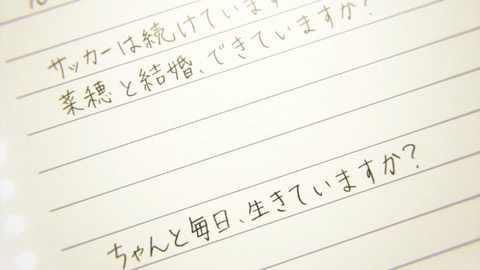 サッカーは続けています
菜穂と結婚、できていますか?
ちゃんと毎日、生きていますか?